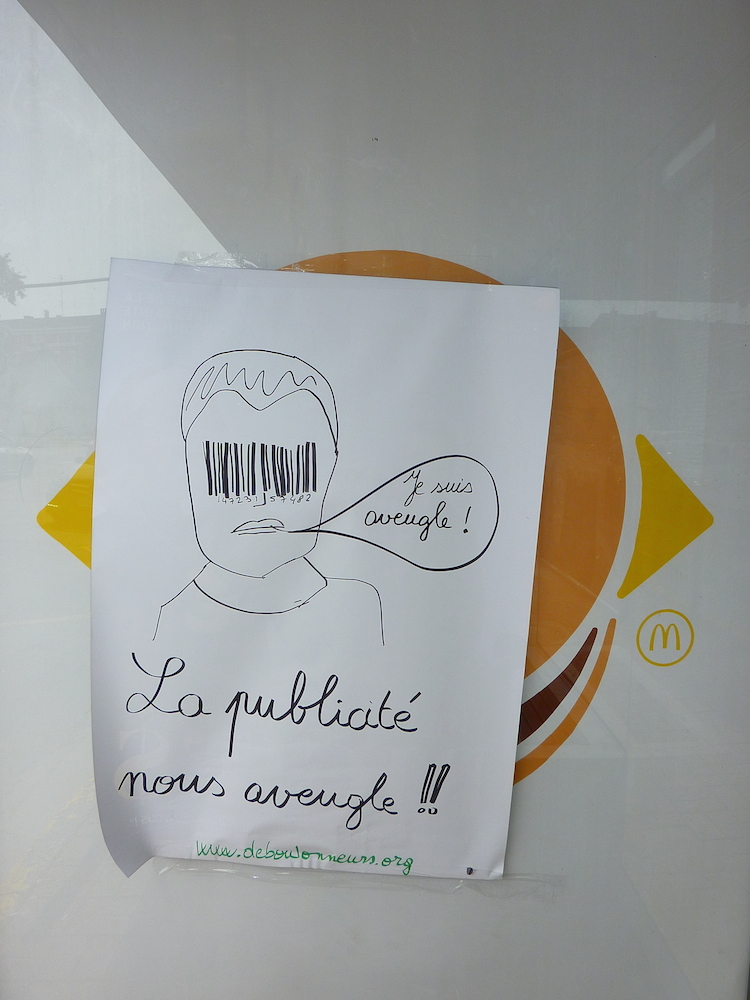 147231 57482
Je suis
aveugle !
La publicité
nous aveugle !!
www.deboulonneurs.org